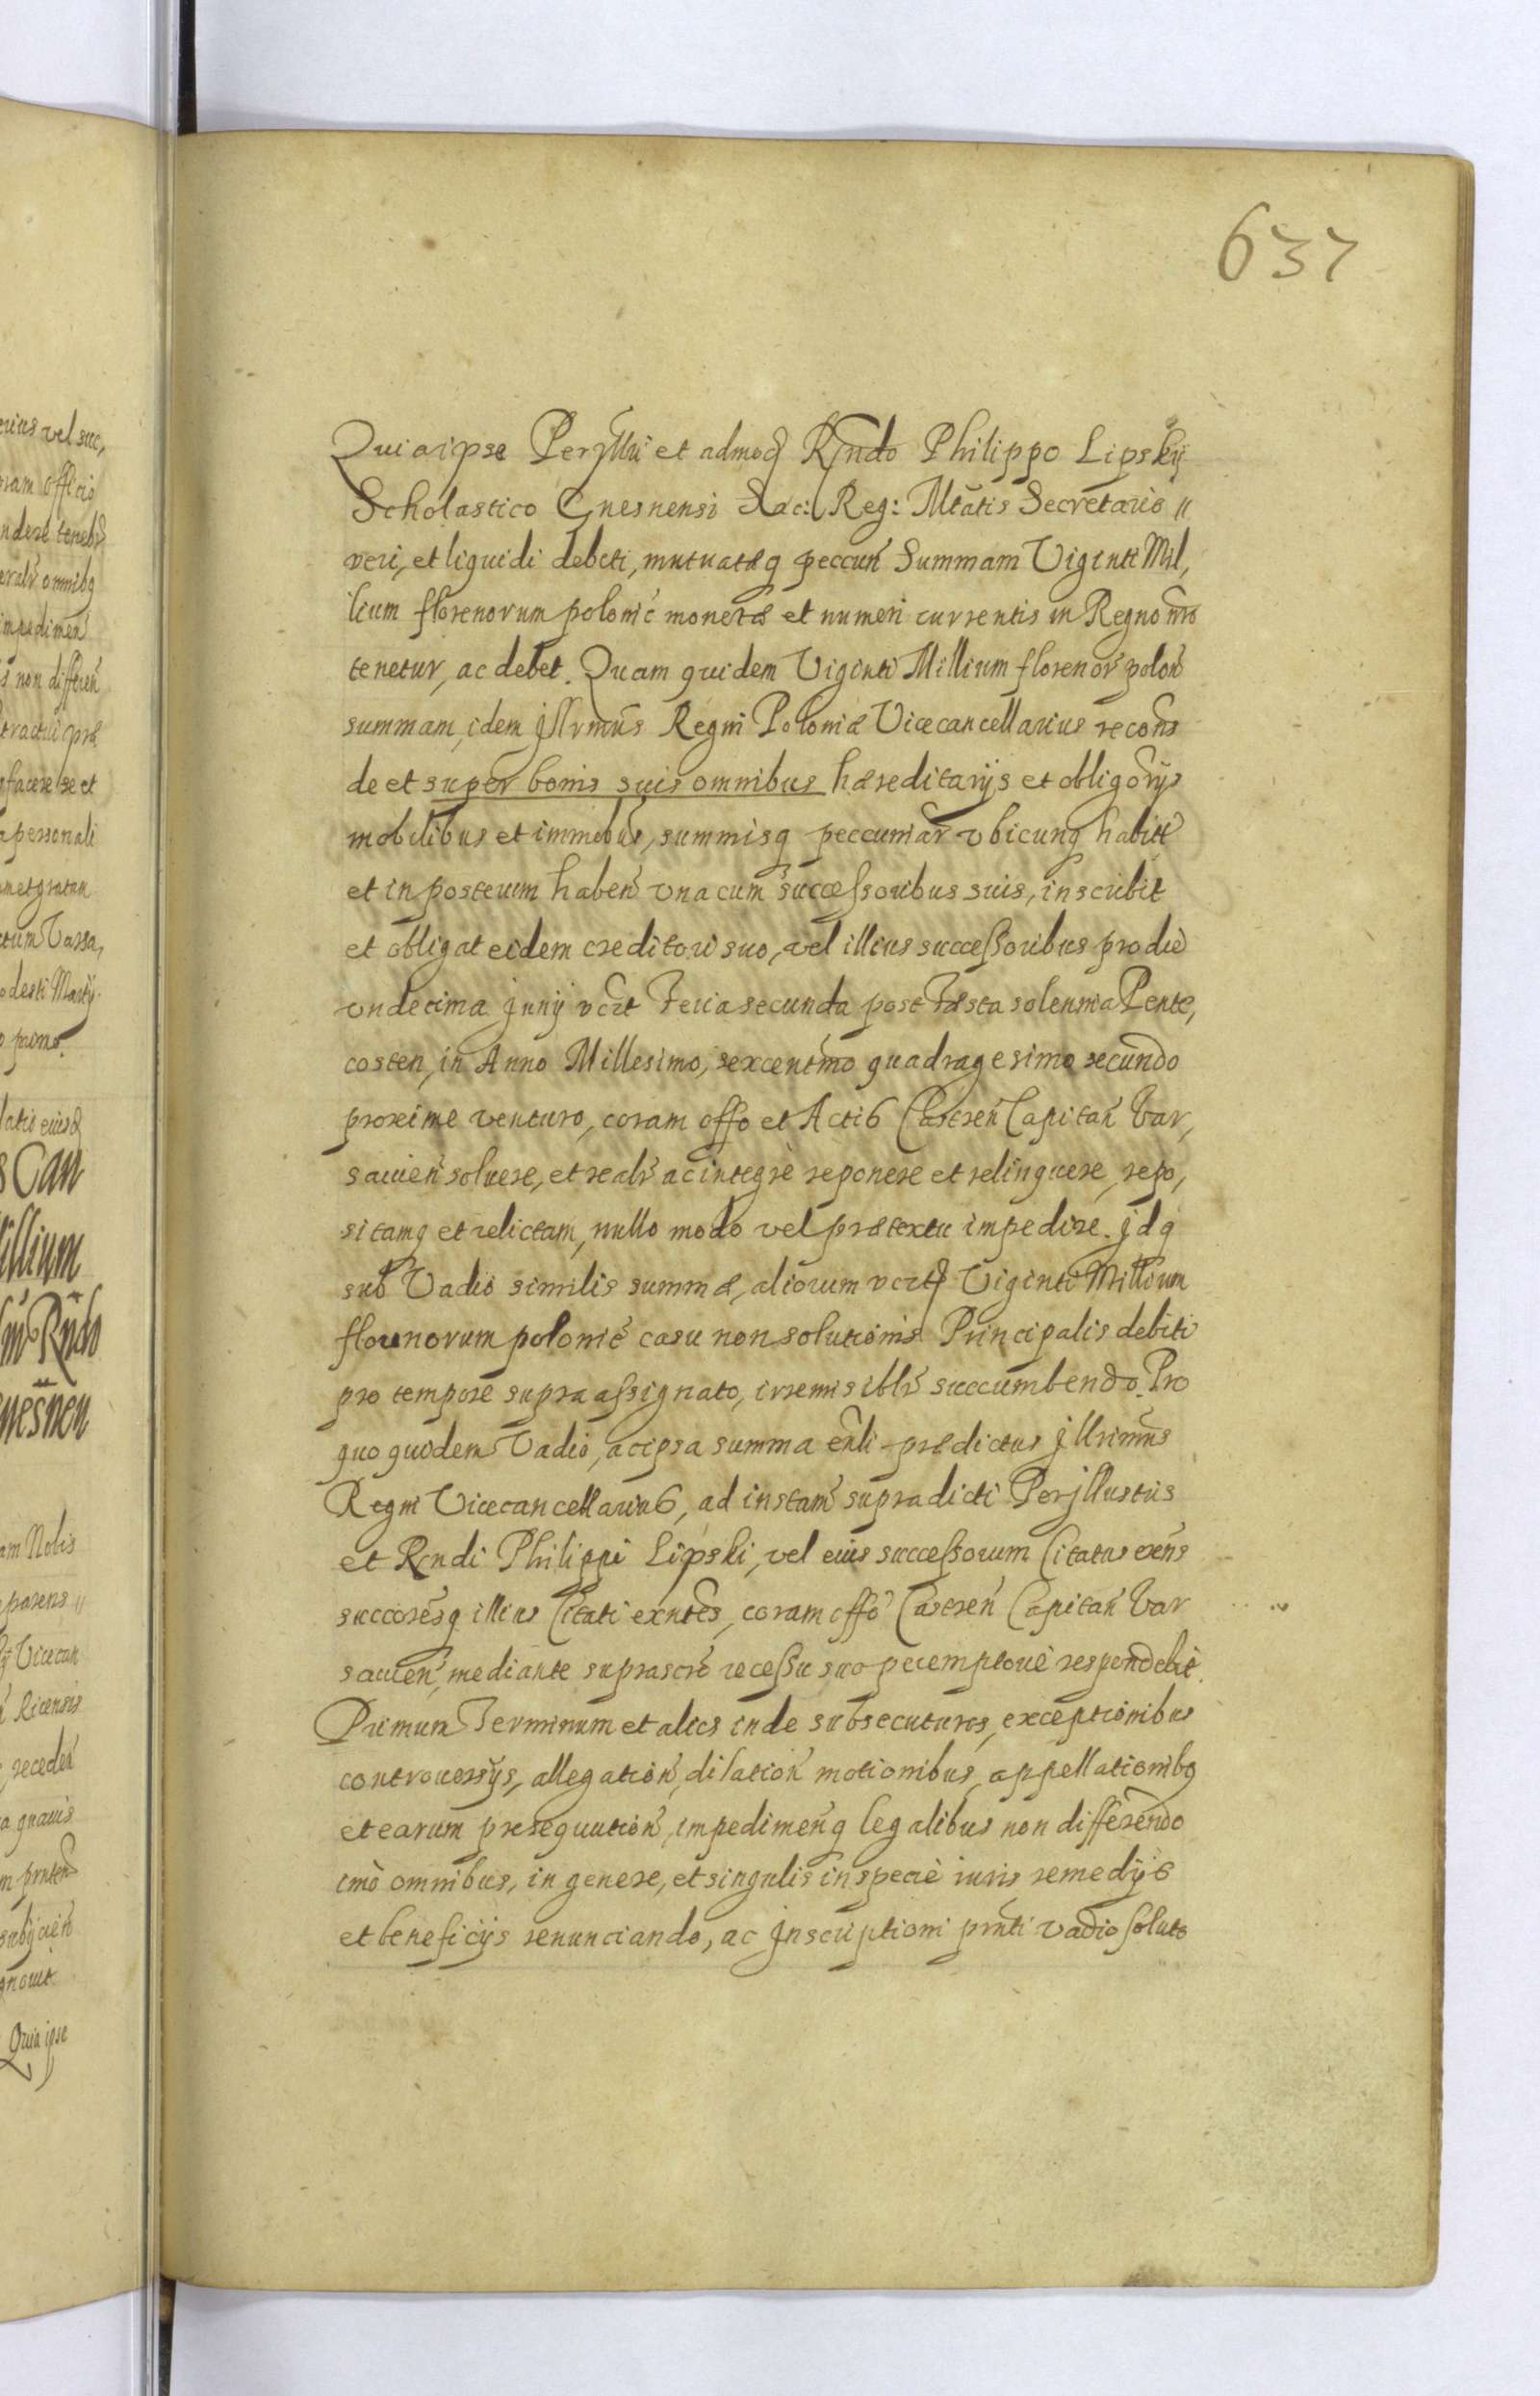 637
Quia ipse Perjllri et admod Rndo Philippo Lipskij
Scholastico Gnesnensi Sac: Reg: Mtatis Secretario //
veri, et liquidi debiti, mutuatæq peccun Summam Viginti Mil,
lium florenorum polonic monetæ et numeri currentis in Regno nro
tenetur, ac debet. Quam quidem Viginti Millium florenor polon
summam, idem jllrmus Regni Poloniæ Vicecancellarius recons
de et super bonis suis omnibus hæreditarijs et obligorijs
mobilibus et immobus, summisq peccuniar vbicunq habiti
et in posterum haben vna cum successoribus suis, inscribit
et obligat eidem creditori suo, vel illius successoribus pro die
vndecima junij vczt Feria secunda post Festa solennia Pente,
costen, in Anno Millesimo, sexcentmo quadragesimo secundo
proxime venturo, coram offo et Actis Castren Capitan Var,
sauien soluere, et realr ac integrè reponere et relinquere, repo,
sitamq et relictam, nullo modo vel prætextu impedire. jdq
sub Vadio similis summæ, aliorum vczt Viginti Millium
florenorum polonic casu non solutionis Principalis debiti
pro tempore supra assignato, irremisiblr succumbendo. Pro
quo quidem Vadio, ac ipsa summa enli prædictus jllrimus
Regni Vicecancellarius, ad instam supradicti Perjllustris
et Rendi Philippi Lipski, vel eius successorum Citatus exens
succoresq illius Citati exntes, coram offo Castren Capitan Var
sauien, mediante suprascro recessu suo peremptoriè respondebit.
Primum Terminum et alios inde subsecuturos, exceptionibus
controuersijs, allegation, dilation motionibus, appellationibq
et earum prosequution, impedimenq legalibus non differendo
imò omnibus, in genere, et singulis in speciè iuris remedijs
et beneficijs renunciando, ac jnscriptioni pnti vadio soluto